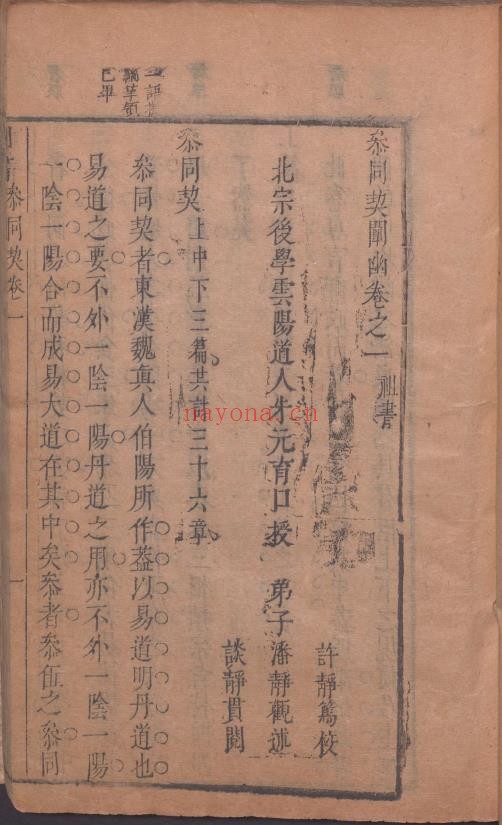 叅同契闡幽卷之一 祖書
許靜篤校
北宗後學雲陽道人朱元育口授 弟子潘靜觀述
談靜貫閱
叅同契上中下三篇共計三十六章
叅同契者東漢魏眞人伯陽所作蓋以易道明丹道也
易道之要不外一陰一陽丹道之用亦不外一陰一陽
一陰一陽合而成易大道在其中矣叅者叅伍之叅同
叅同契卷一
一
已畢
nayona.cn